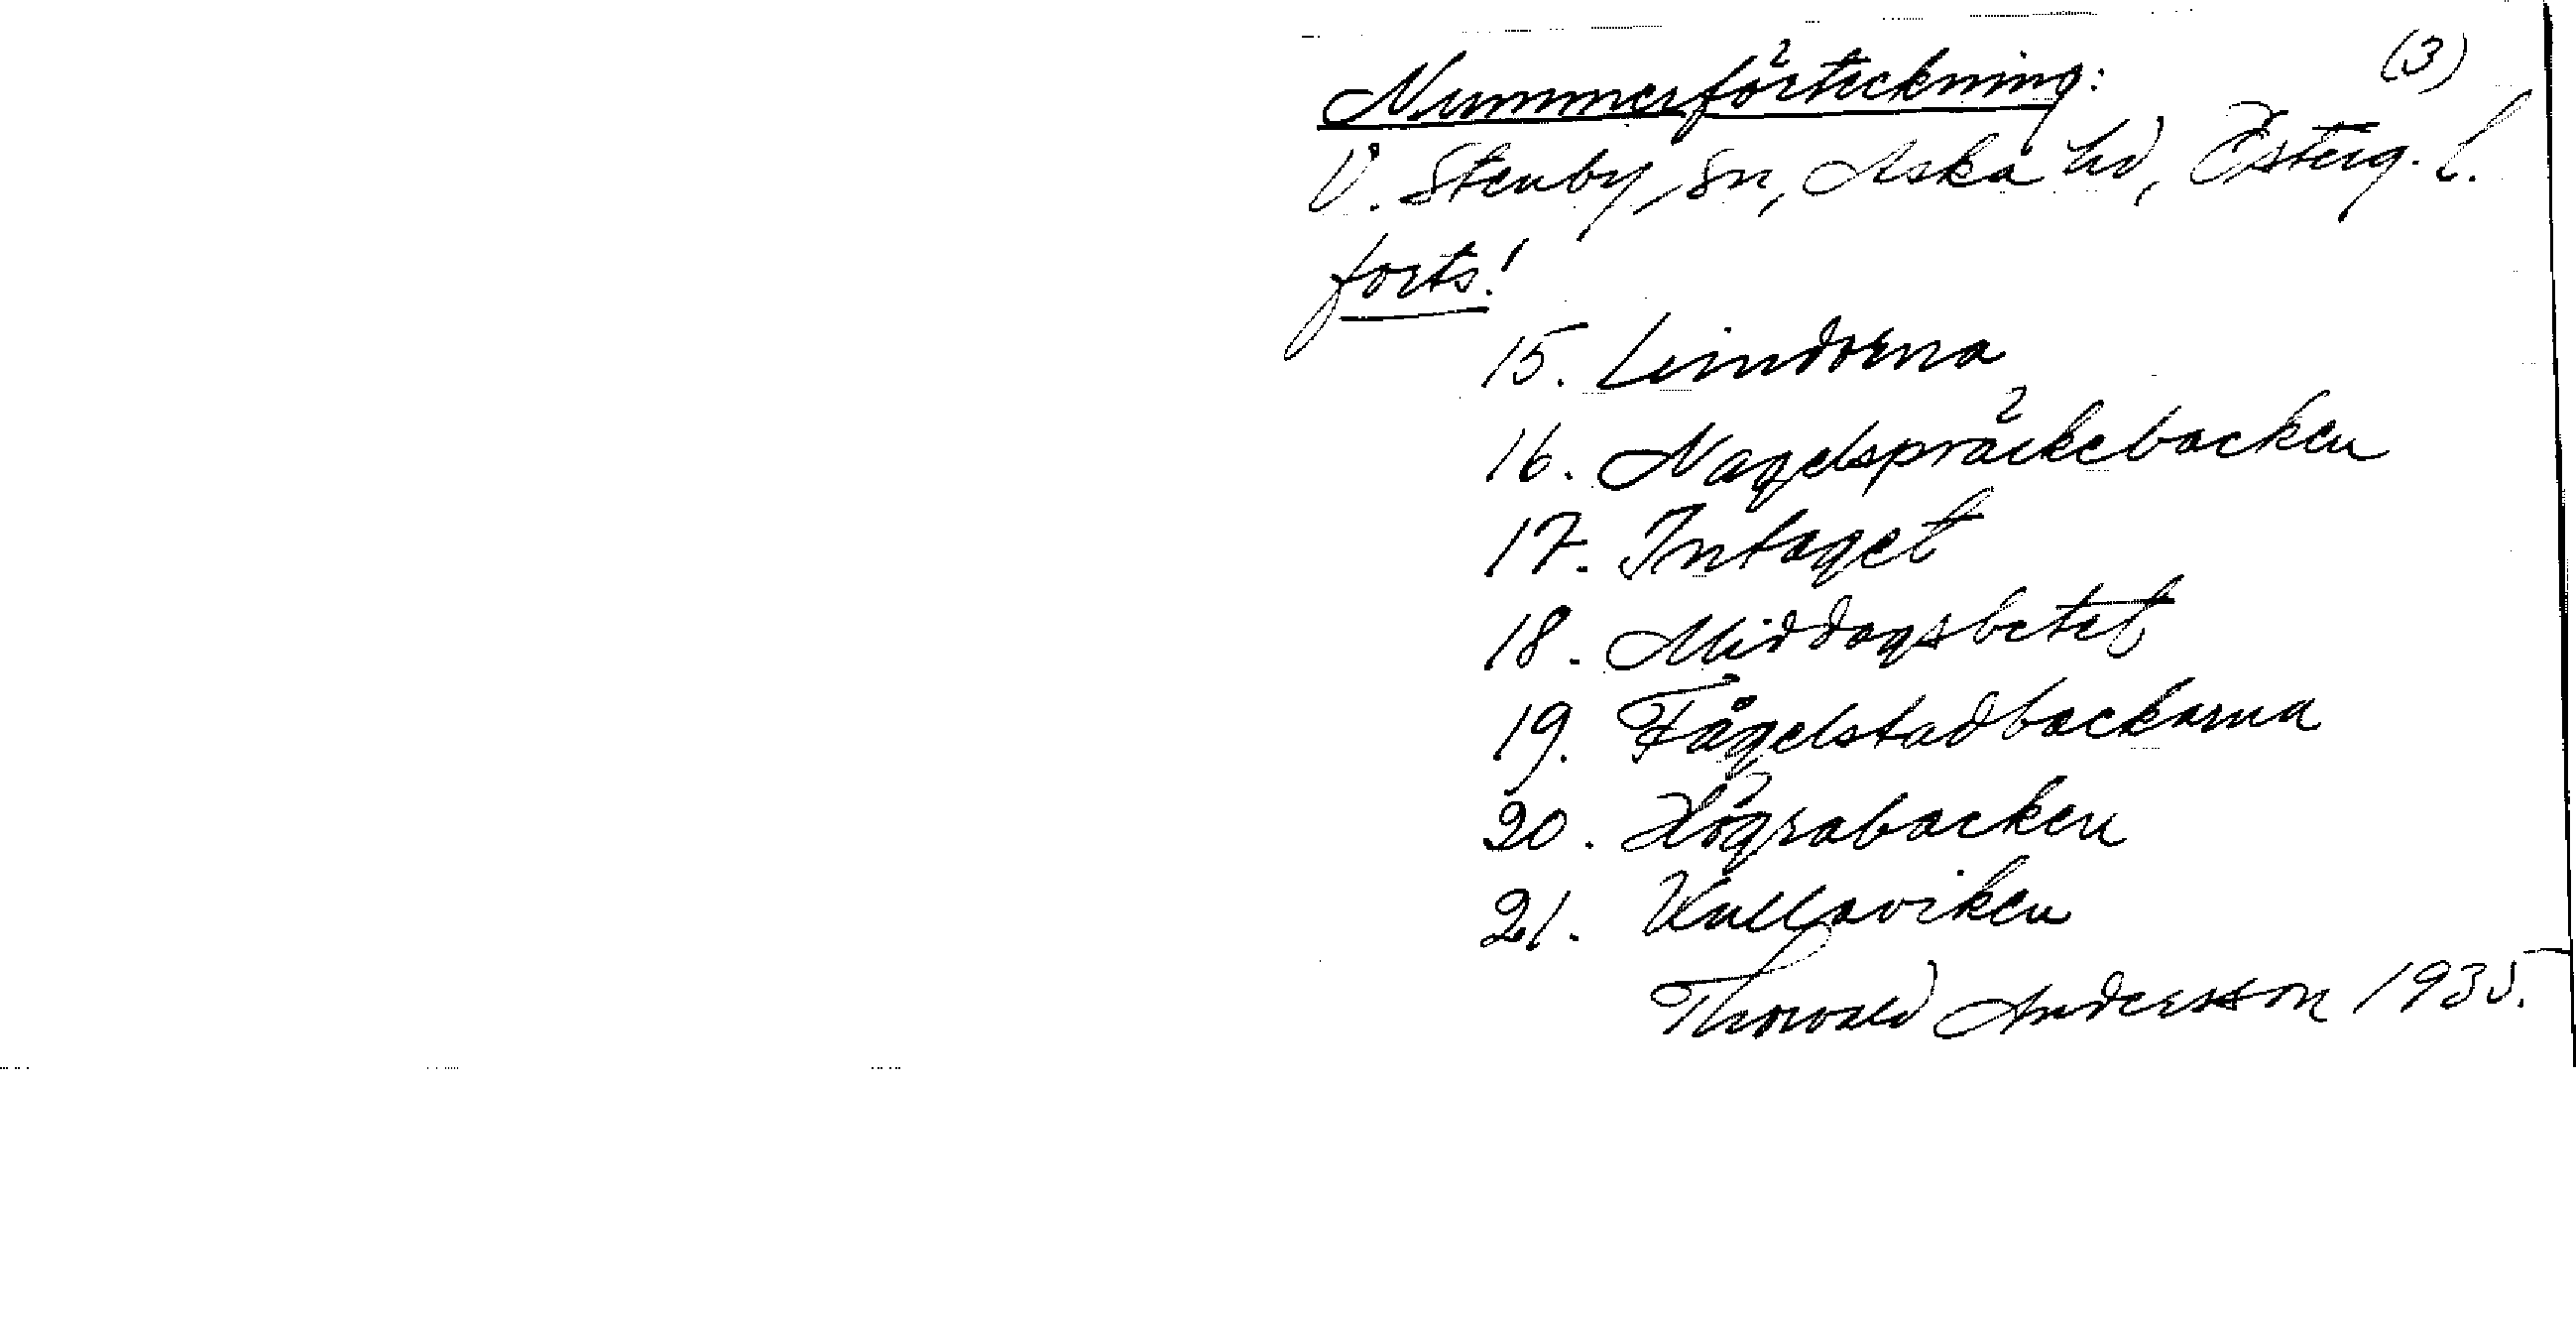 (3)
Nummerförteckning:
V. Stenby sn, Aska hd, Österg. l.
forts!
15. Lindorna
16. Nagelspräckebacken
17. Intaget
18. Middagsbetet
19. Fågelstadbackarna
20. Högrabacken
21. Kullaviken
Thorvald Andersson 1935.